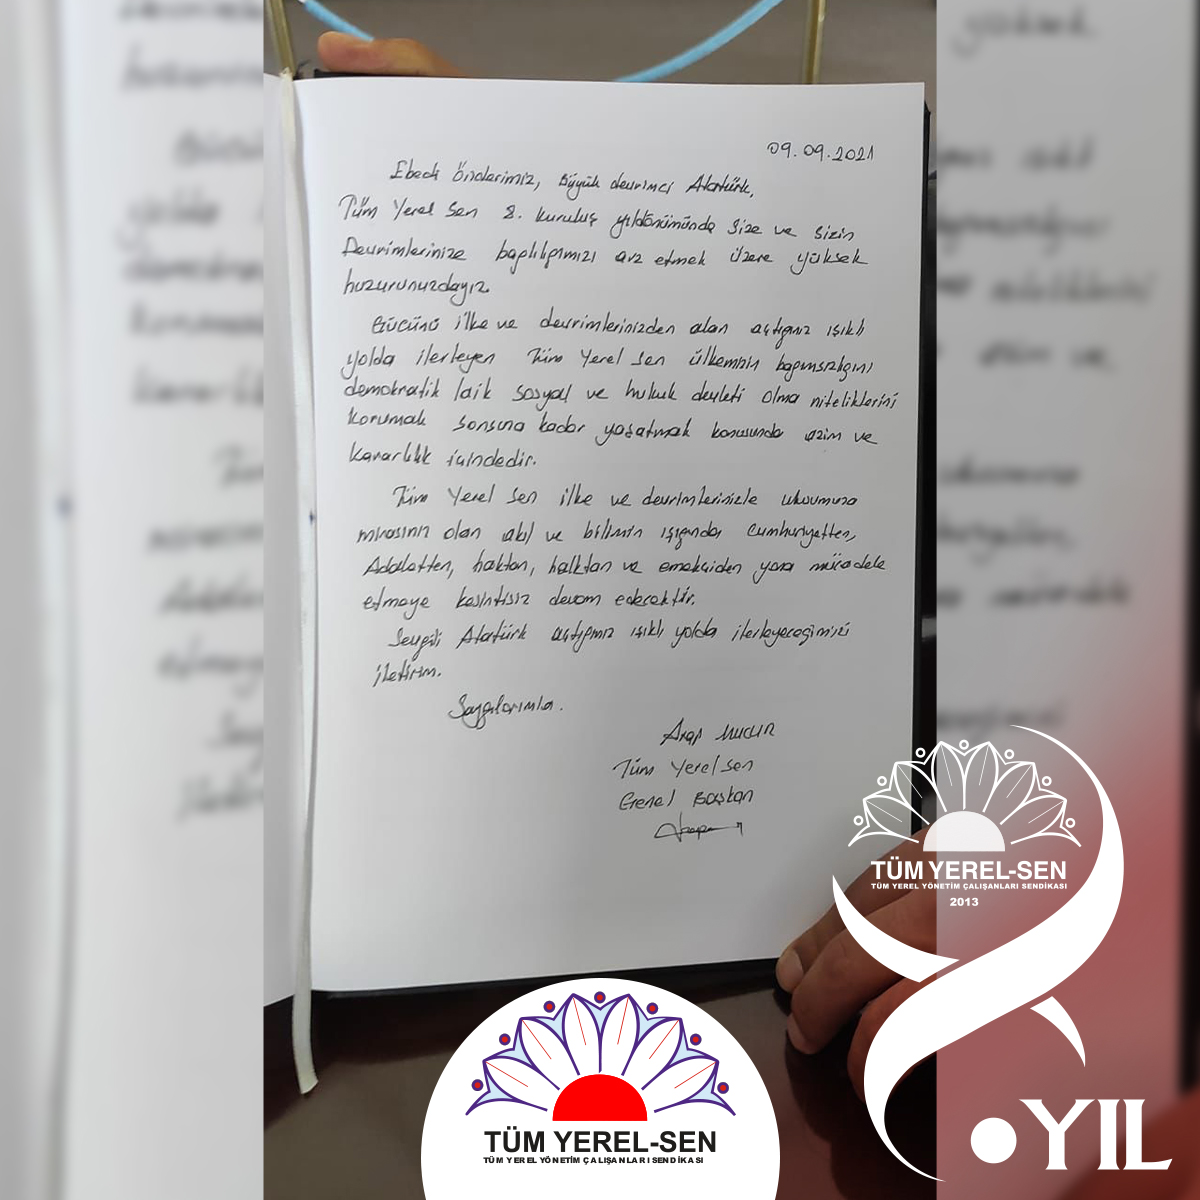 09.09.2021
Ebedi önderimiz, Büyük devrimci Atatürk,
Tüm Yerel Sen 8. kuruluş yıldönümünde size ve sizin
Devrimlerinize bağlılığımızı arz etmek üzere yüksek
huzurunuzdayız.
Gücünü ilke ve devrimlerinizden alan açtığınız ışıklı
yolda ilerleyen Tüm Yerel Sen ülkemizin bağımsızlığını
demokratik laik sosyal ve hukuk devleti olma niteliklerini
korumak sonsuza kadar yaşatmak konusunda azim ve
kararlılık içindedir.
Tüm Yerel Sen ilke ve devrimlerinizle
mirasınız olan akıl ve bilimin ışığında Cumhuriyetten,
Adaletten, haktan, halktan ve emekçiden yana mücadele
etmeye kesintisiz devam edecektir.
Sevgili Atatürk açtığınız ışıklı yolda ilerleyeceğimizi
iletirim.
Saygılarımla.
Tüm Yerel Sen
Genel Başkan
TÜM YEREL-SEN
TÜM YEREL YÖNETİM ÇALIŞANLARI SENDİKASI
2013
8.YIL
TÜM YEREL-SEN
TÜM YEREL YÖNETİM ÇALIŞANLARI SENDİKASI